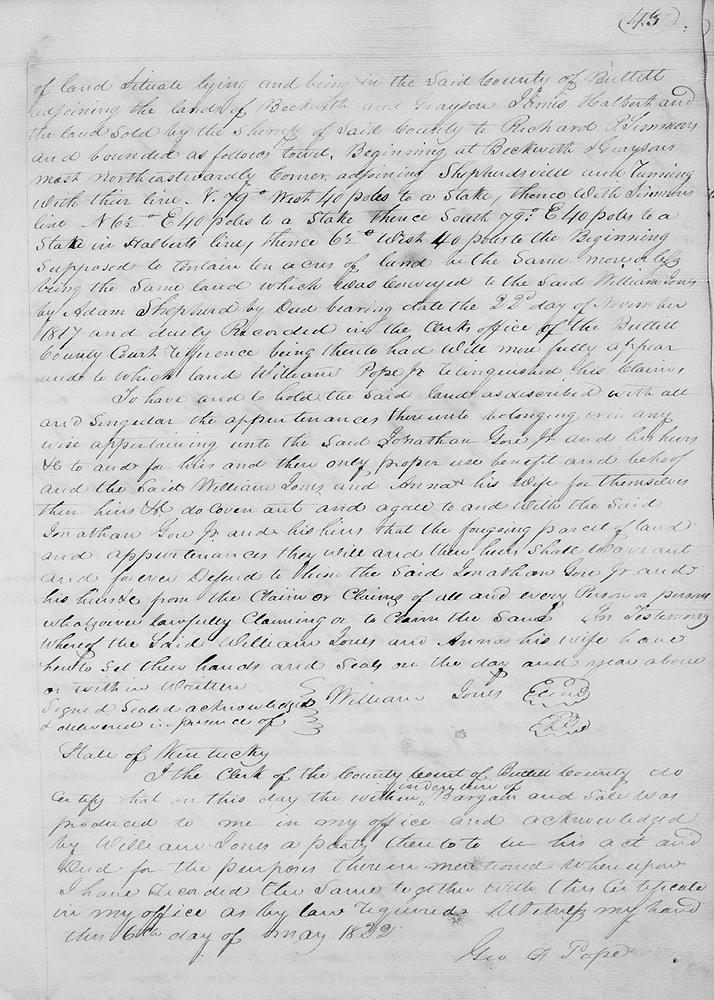 (43)
of land Situate lying and being in the Said County of Bullett
adjoining the lands of Beckwith and Grayson James Halbert and
the land Sold by the Sherriff of Said County to Richard P. Simmons
and bounded as follows towit, Beginning at Beckwith & Graysons
most northeastwardly Corner adjoining Shepherdsville and Running
with their line N. 79° West 40 poles to a Stake, thence with Simmons
line N 6½° E 40 poles to a Stake thence South 79° E 40 poles to a
Stake in Halberts line, thence 6½° West 40 poles to the Beginning
Supposed to Contain ten acres of land be the Same more or less
being the Same land which was Conveyed to the Said William Jones
by Adam Shepherd by Deed bearing date the 22d day of November
1817 and duly Recorded in the Clerks office of the Bullett
County Court Reference being thereto had will more fully appear
and to which land William Pope Jr Relinquished his Claim,
To have and to hold the Said land as described with all
and Singular the appurtenances thereunto belonging or in any
wise appertaining unto the Said Jonathan Gore Jr and his heirs
&c to and for his and their only proper use benefit and behoof
and the Said William Jones and Anna his Wife for themselves
their heirs &c do Covenant and agree to and with the Said
Jonathan Gore Jr and his heirs that the foregoing parcel of land
and appurtenances they will and their heirs Shall Warrant
and forever Defend to him the Said Jonathan Gore Jr and
his heirs &c from the Claim or Claims of all and every Person or persons
whatsoever lawfully Claiming or to Claim the Same In Testimony
Whereof the Said William Jones and Anna his wife have
hereto Set their hands and Seals on the day and year above
or within Written
Signed Sealed acknowledged William Jones Seal
& delivered in presence of Seal
State of Kentucky
I the Clerk of the County Court of Bullett County do
Certify that on this day the within Indenture of Bargain and Sale was
produced to me in my office and acknowledged
by William Jones a party thereto to be his act and
Deed for the purposes therein mentioned whereupon
I have Recorded the Same together with this Certificate
in my office as by law required Witness my hand
this 6th day of May 1822
Geo F Pope